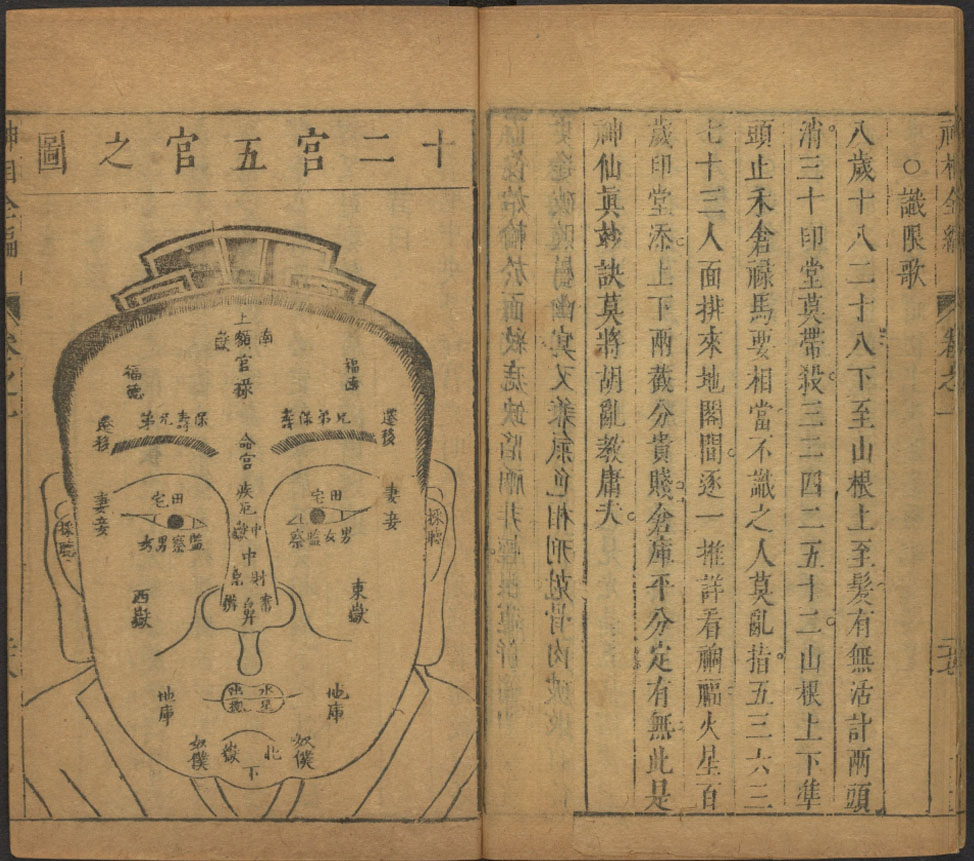 神相全編
卷之一
○識限歌
八歲十八二十八下至山根上至髮有無活計兩頭
消三十印堂莫帶殺三二四二五十二山根上下準
頭止禾倉祿馬要相當不識之人莫亂指五三六三
七十三人面排來地閣間逐一推詳看禍福火星百
歲印堂添上下兩截分貴賤倉庫平分定有無此是
神仙眞玅訣莫將胡亂教庸夫
十二宮五官之圖
南
上
額
嶽
官祿
福德
福德
遷移
兄弟保壽
保壽兄弟
遷移
命宮
疾厄
妻妾
田宅
男女
監察
田宅
男女
監察
妻妾
採聽
採聽
中嶽
中
財帛
鼻
東嶽
西嶽
地庫
水星
地庫
奴僕
北嶽
下
奴僕